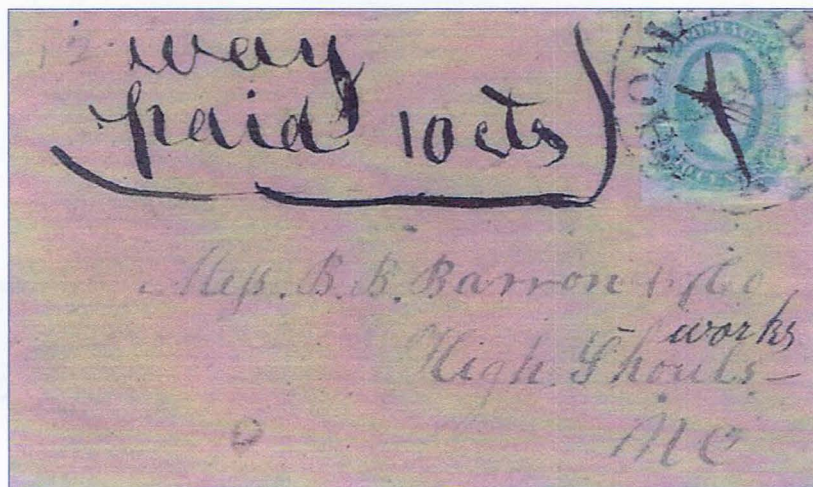 way
paid 10 cts
Mess. B. B. Barron & Co
works
High Shouls –
N C